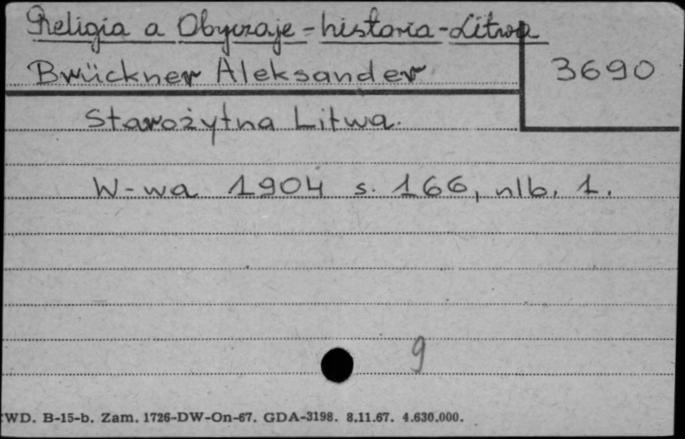 Religia a Obyczaje = historia - Litwa
Brückner Aleksander
3690
Starożytna Litwa.
W-wa 1904 s. 166, nlb. 1.
9
WD. B-15-b. Zam. 1726-DW-On-67. GDA-3198. 8.11.67. 4.630.000.